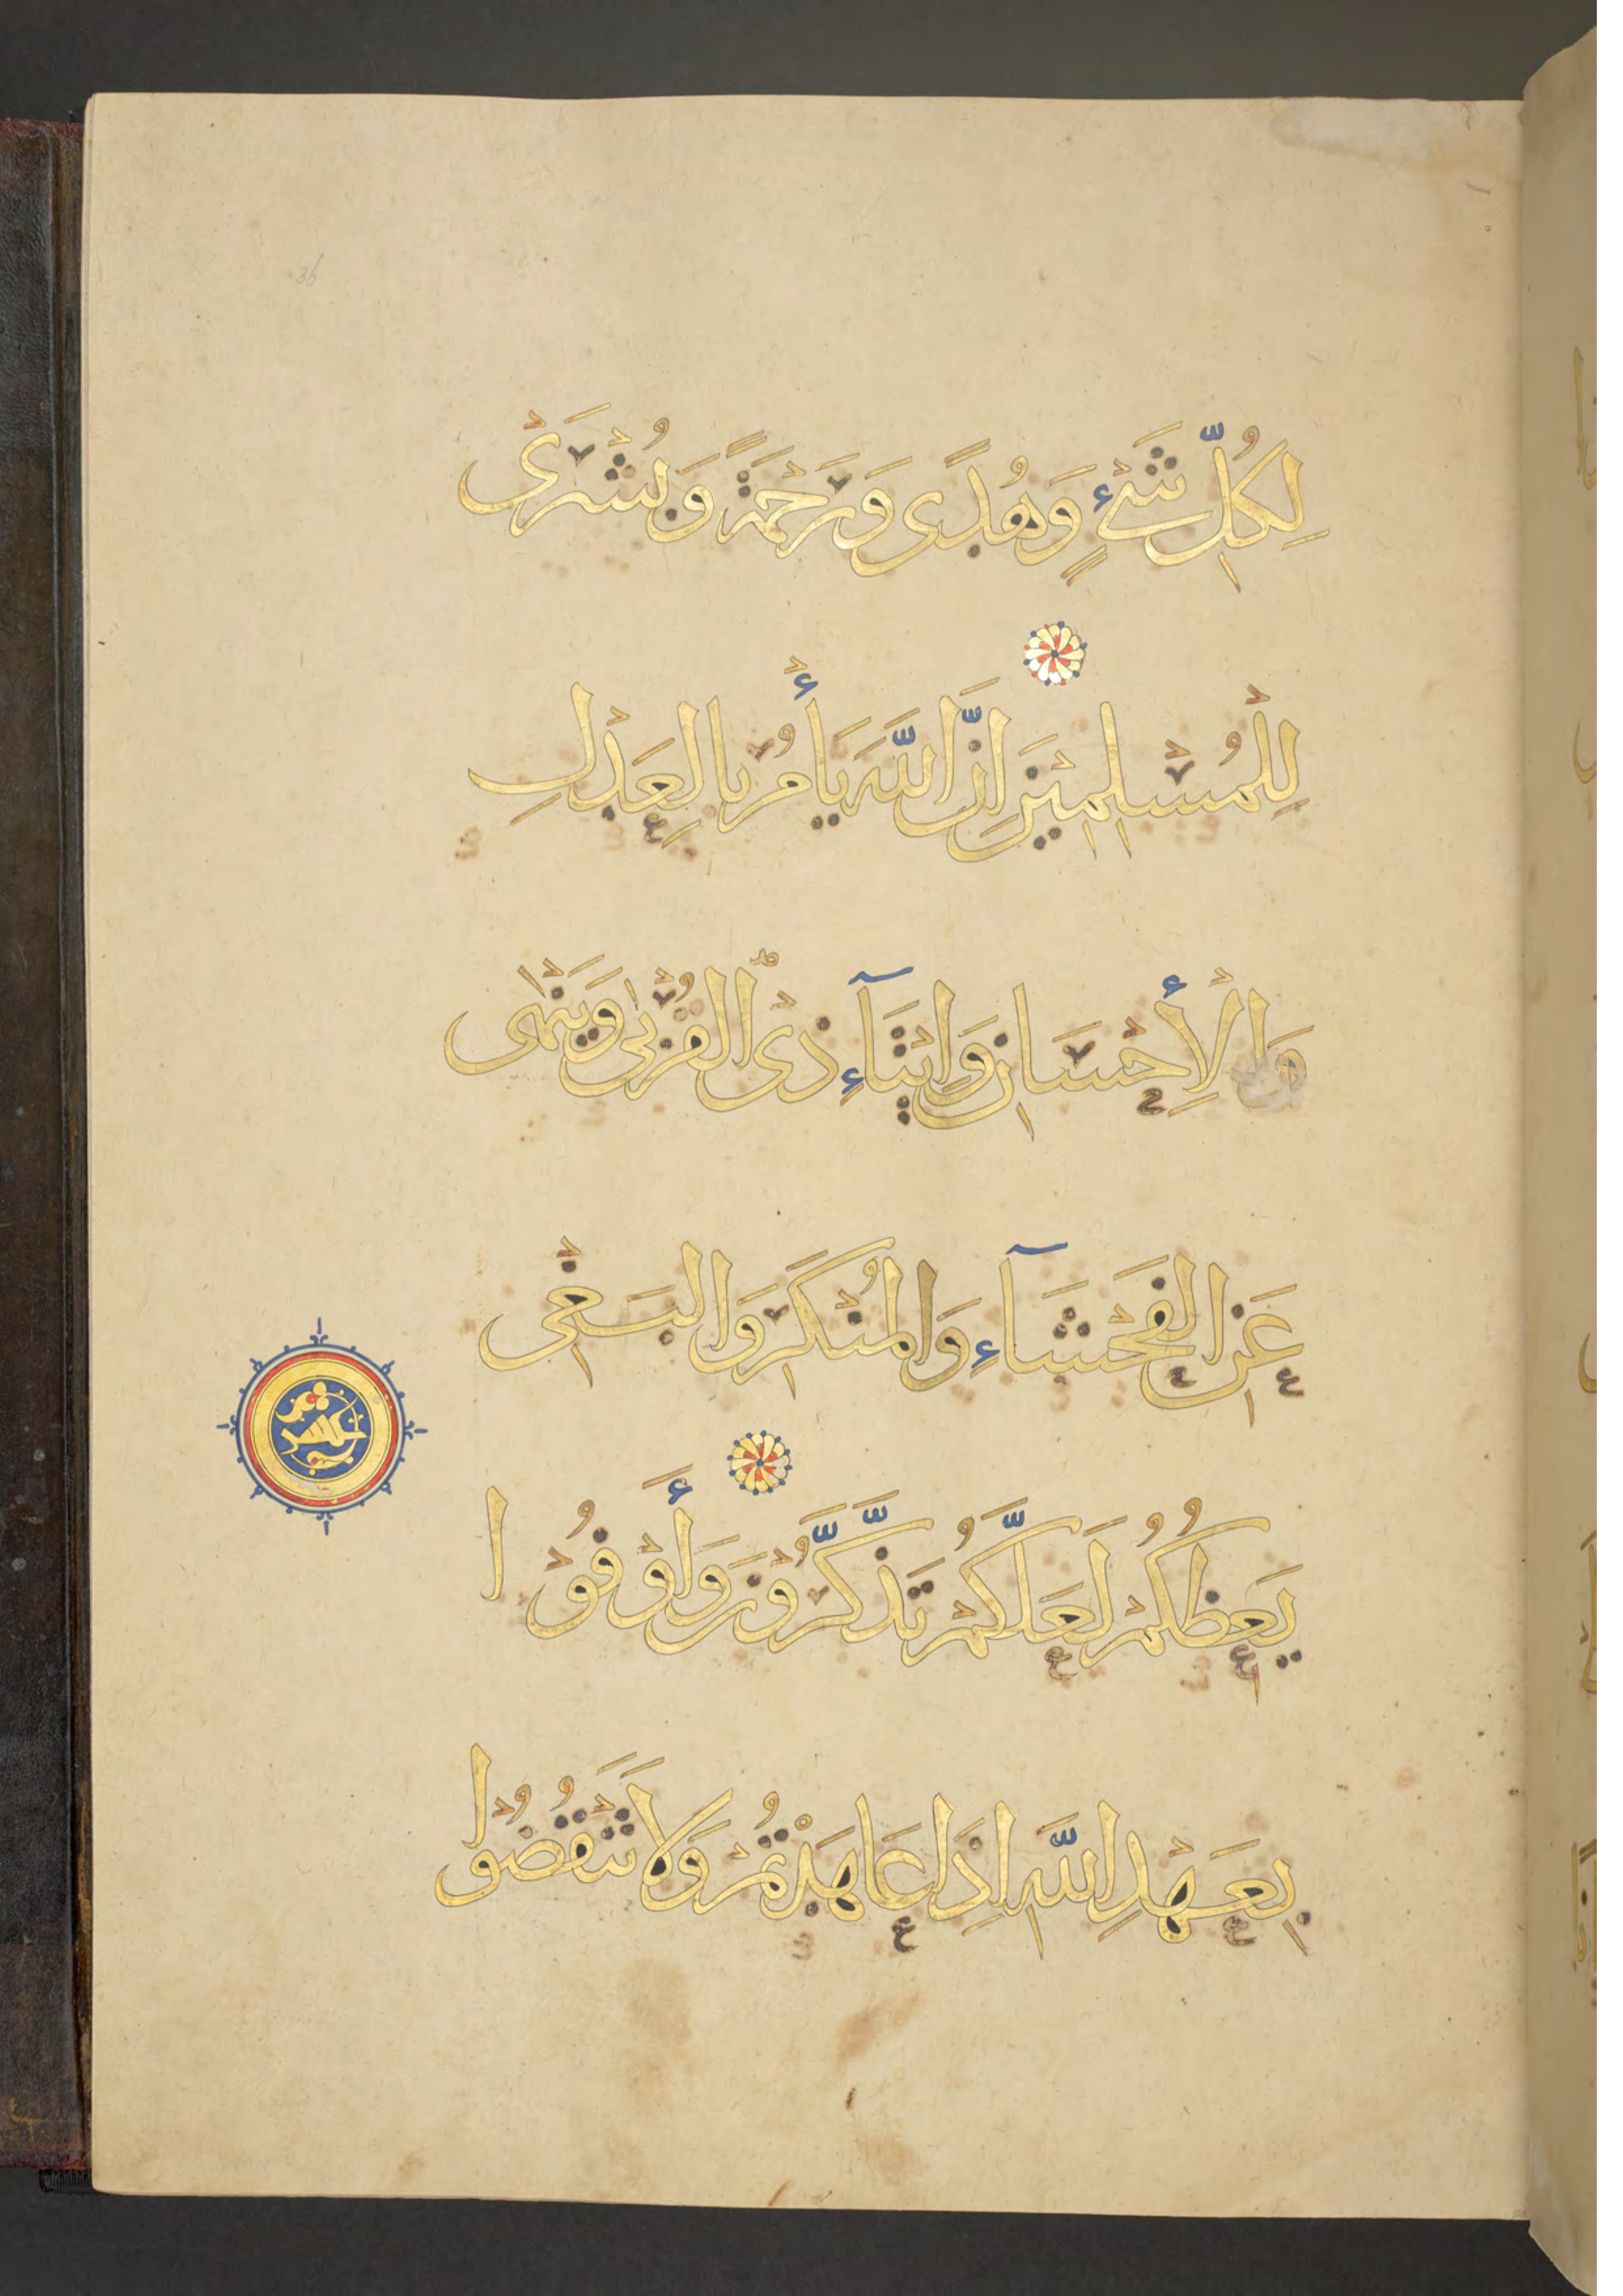 لِكُلِّ شَيْءٍ وَهُدًى وَرَحْمَةً وَبُشْرَىٰ
لِلْمُسْلِمِيْنَ إِنَّ اللّٰهَ يَأْمُرُ بِالْعَدْلِ
وَالْأِحْسَانِ وَاِيْتَآءِ ذِى الْقُرْبٰى وَيَنْهٰى
عَنِ الْفَحْشَآءِ وَالْمُنْكَرِ وَالْبَغْىِ
يَعِظُكُمْ لَعَلَّكُمْ تَذَّكَّرُوْنَ وَأَوْفُوْا
بِعَهْدِ اللّٰهِ اِذَا عَاهَدْتُمْ وَلَا تَنْقُضُوا
36